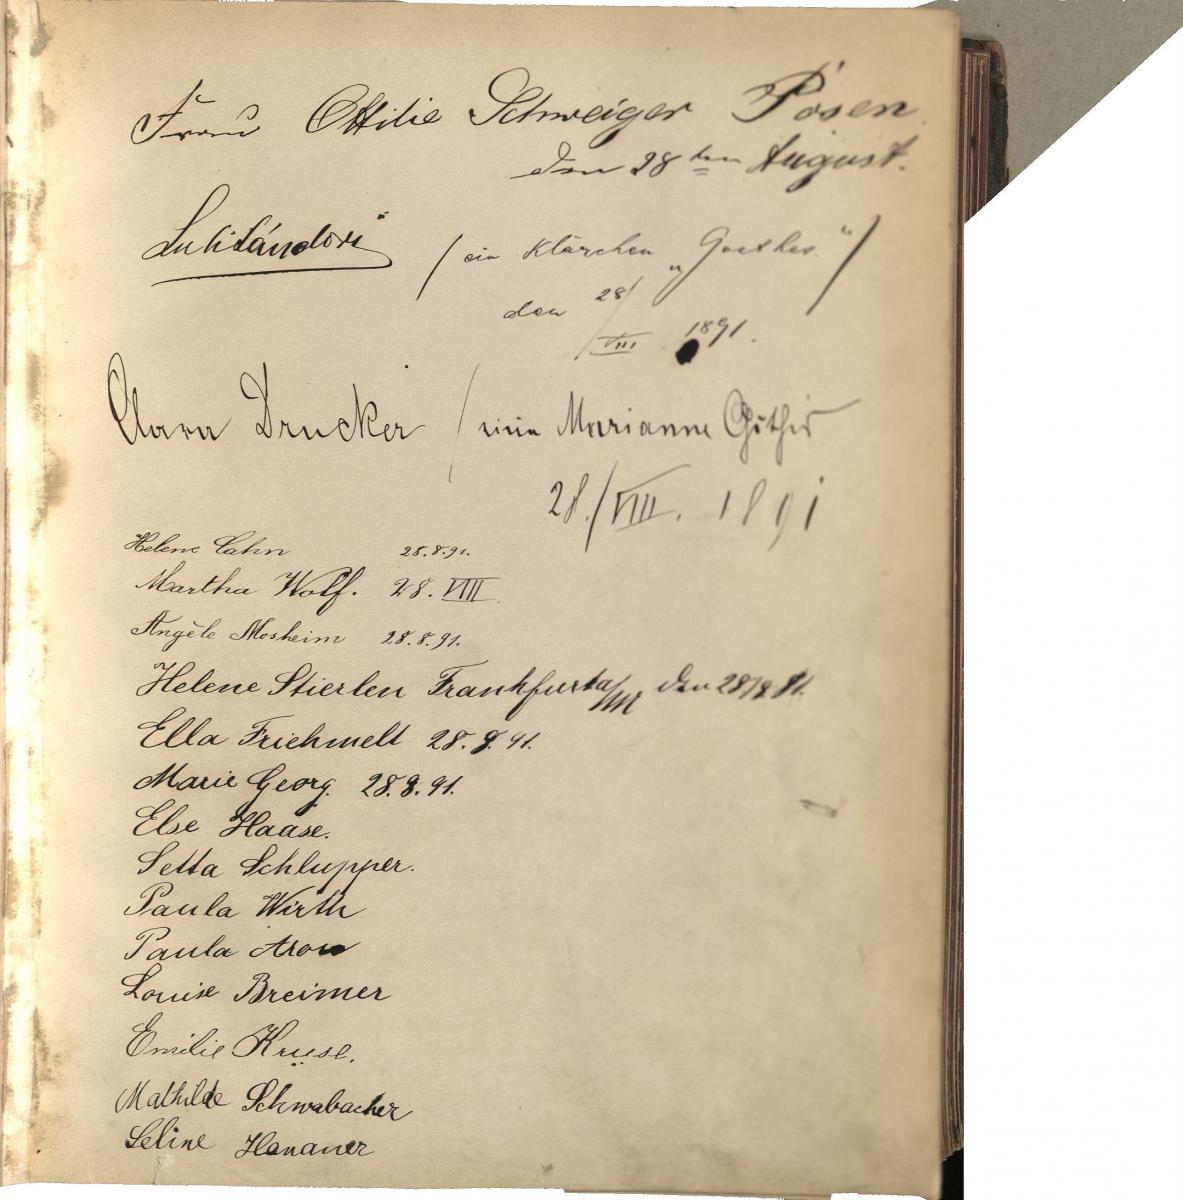 Frau Ottilie Schweiger Posen.
den 28ten August.
/ ein Klärchen „Goethes“ /
den 28/VIII 1891.
Clara Drucker / eine Marianne Göthes
28./VIII. 1891
Helene Cahn 28.8.91.
Martha Wolf. 28. VIII
Angèle Mosheim 28.8.91.
Helene Stierlen Frankfurt a/M den 28/8 91.
Ella Friehmelt 28.8.91.
Marie Georg. 28.8.91.
Else Haase.
Setta Schlupper.
Paula Wirth
Paula Aron
Louise Breimer
Emilie Kruse.
Mathilde Schwabacher
Seline Hanauer